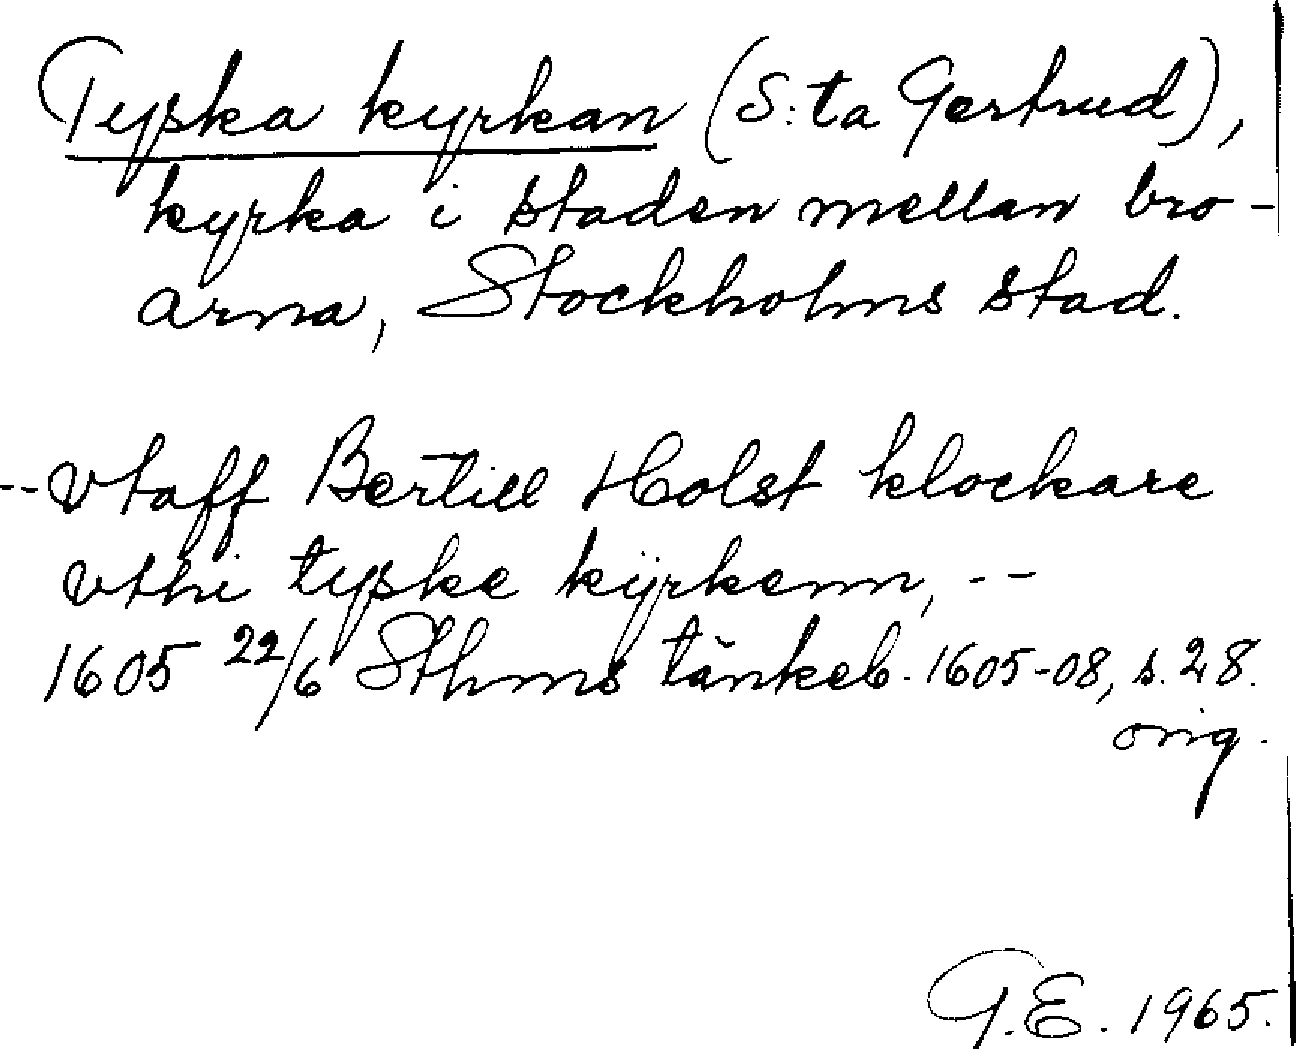 Tyska kyrkan (S:ta Gertrud),
kyrka i staden mellan bro-
arna, Stockholms stad.
-- vtaff Bertill Holst klockare
vthi tyske kÿrkenn, --
1605 22/6 Sthms tänkeb. 1605-08, s. 28.
orig.
G.E. 1965.